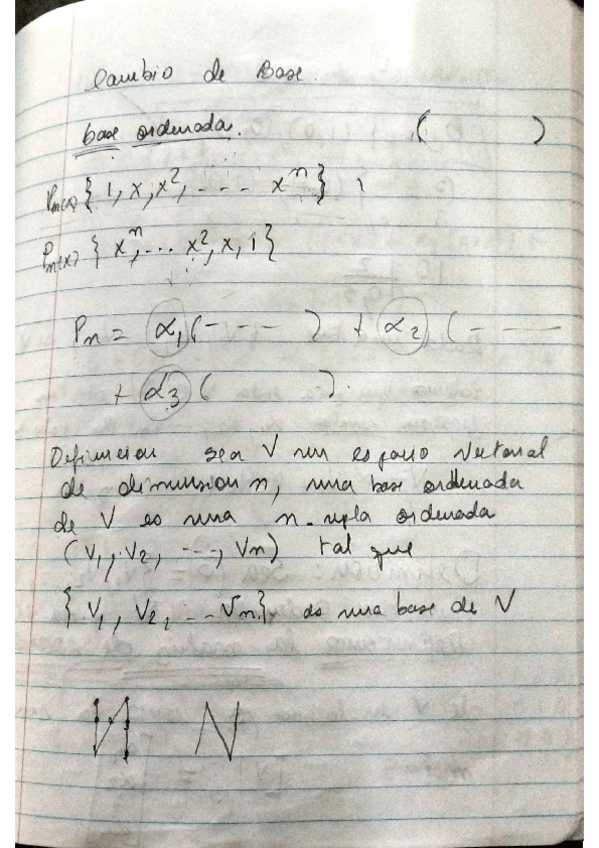 Cambio de Base.
base ordenada. ( )
Pn(x) { 1, x, x², - - - - xⁿ }
Pn(x) { xⁿ, ... x², x, 1 }
Pn = α₁ ( - - - ) + α₂ ( - —
+ α₃ ( ).
Definicion sea V un espacio Vectorial
de dimension n, una base ordenada
de V es una n-upla ordenada
(V₁, V₂, ..., Vn) tal que
{ V₁, V₂, ... Vn }, es una base de V
И N